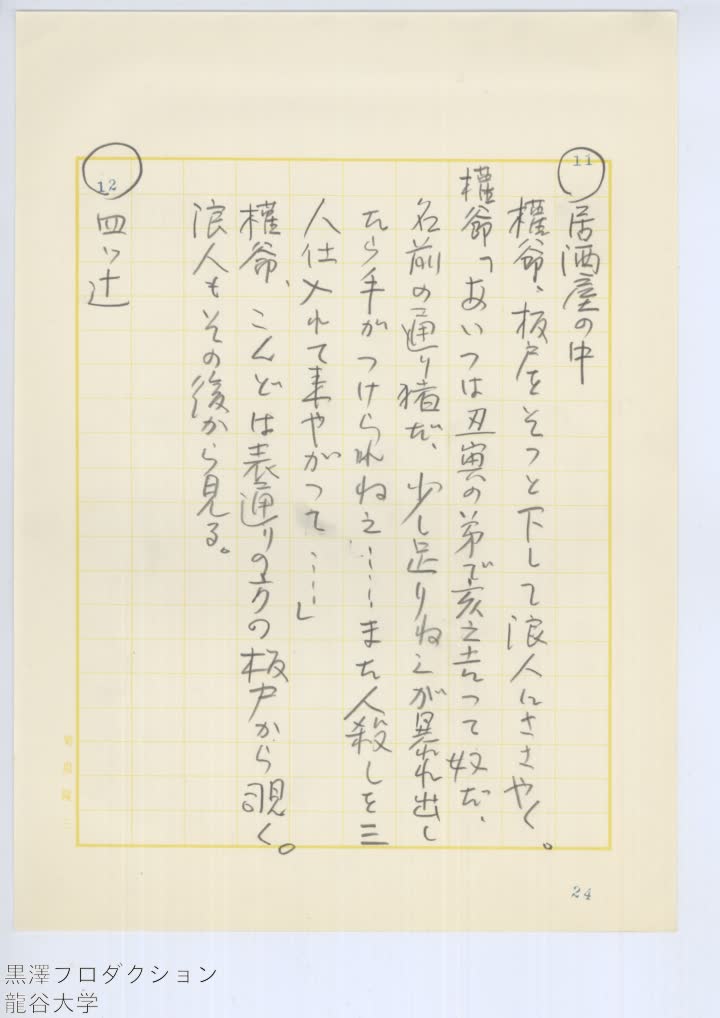 11
居酒屋の中
権爺、板戸をそっと下して浪人にささやく。
権爺「あいつは丑寅の弟で亥之吉って奴だ、
名前の通り猪だ、少し足りねえが暴れ出し
たら手がつけられねえ……また人殺しを三
人仕入れて来やがって……」
権爺、こんどは表通りの方の板戸から覗く。
浪人もその後から見る。
12
四ッ辻
24
黒澤プロダクション
龍谷大学